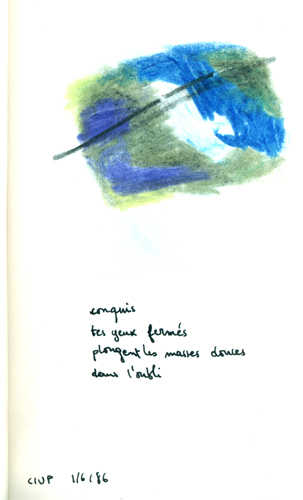 conquis
tes yeux fermés
plongent les masses douces
dans l'oubli
CIUP 1/6/86